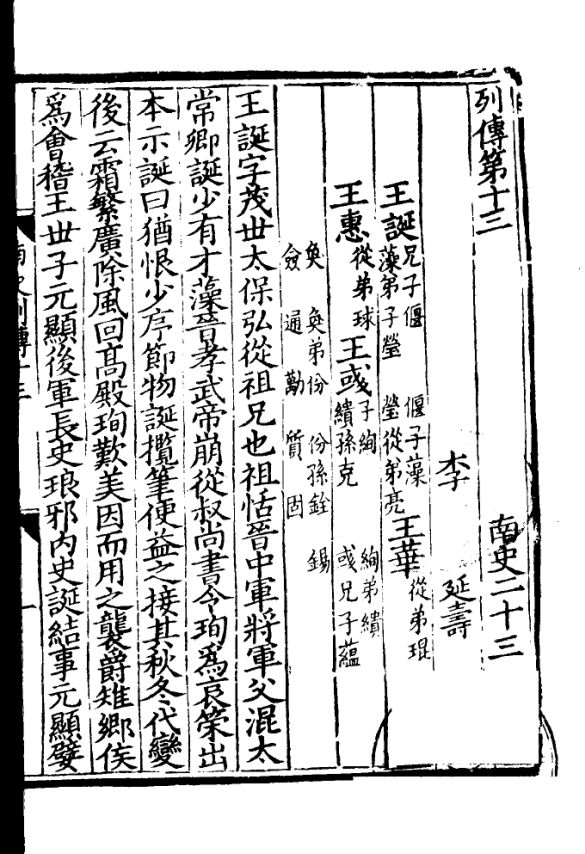 列傳第十三　南史二十三
李　延壽
王誕兄子偃　偃子藻　藻弟子瑩　瑩從弟亮　王華從弟琨
王惠從弟球　王彧子絢　絢弟繢　繢孫克　彧兄子蘊
奐　奐弟份　份孫銓　錫　僉　通　勱　質　固
王誕字茂世太保弘從祖兄也祖恬晉中軍將軍父混太
常卿誕少有才藻晉孝武帝崩從叔尚書令珣爲哀策出
本示誕曰猶恨少序節物誕攬筆便益之接其秋冬代變
後云霜繁廣除風回髙殿珣歎美因而用之襲爵雉鄉侯
爲會稽王世子元顯後軍長史琅邪内史誕結事元顯嬖